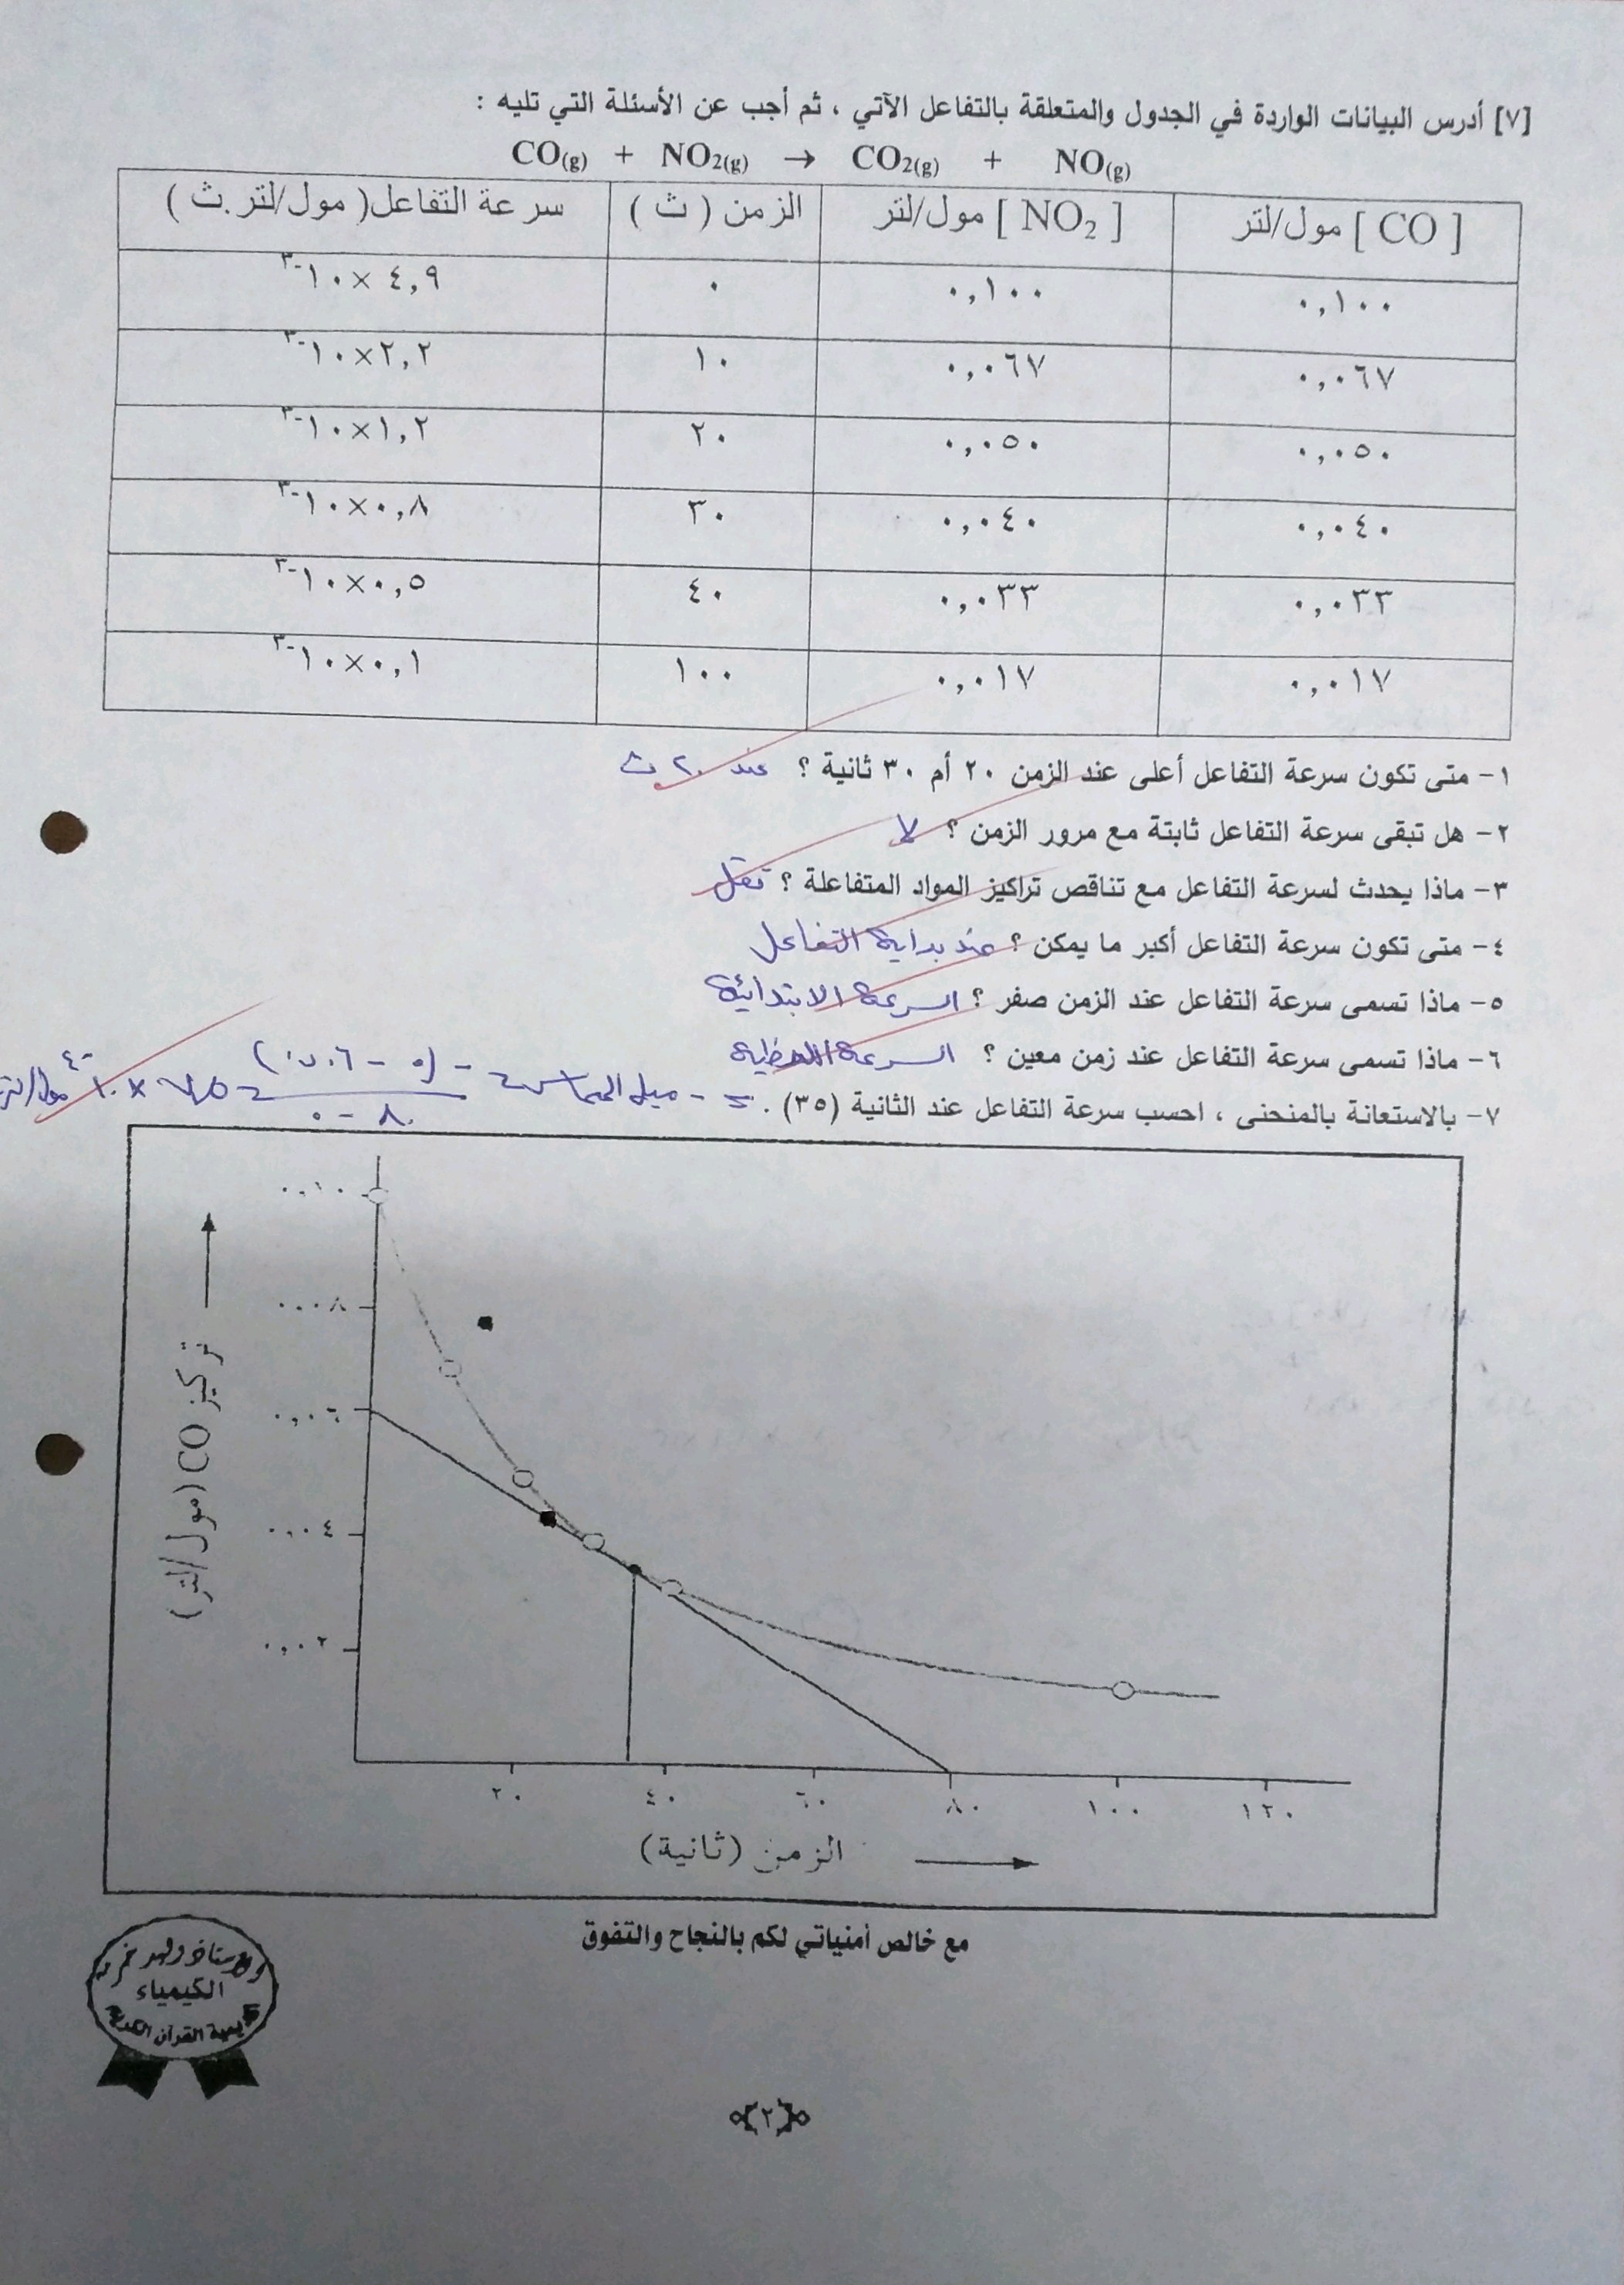 [٧] أدرس البيانات الواردة في الجدول والمتعلقة بالتفاعل الآتي ، ثم أجب عن الأسئلة التي تليه :
CO(g) + NO2(g) → CO2(g) + NO(g)
[ CO ] مول/لتر [ NO2 ] مول/لتر الزمن ( ث ) سرعة التفاعل( مول/لتر.ث )
٠,١٠٠ ٠,١٠٠ ٠ ٤,٩ × ١٠-٣
٠,٠٦٧ ٠,٠٦٧ ١٠ ٢,٢×١٠-٣
٠,٠٥٠ ٠,٠٥٠ ٢٠ ١,٢×١٠-٣
٠,٠٤٠ ٠,٠٤٠ ٣٠ ٠,٨×١٠-٣
٠,٠٣٣ ٠,٠٣٣ ٤٠ ٠,٥×١٠-٣
٠,٠١٧ ٠,٠١٧ ١٠٠ ٠,١×١٠-٣
١- متى تكون سرعة التفاعل أعلى عند الزمن ٢٠ أم ٣٠ ثانية ؟ عند ٢٠ ث
٢- هل تبقى سرعة التفاعل ثابتة مع مرور الزمن ؟ لا
٣- ماذا يحدث لسرعة التفاعل مع تناقص تراكيز المواد المتفاعلة ؟ تقل
٤- متى تكون سرعة التفاعل أكبر ما يمكن ؟ عند بداية التفاعل
٥- ماذا تسمى سرعة التفاعل عند الزمن صفر ؟ السرعة الابتدائية
٦- ماذا تسمى سرعة التفاعل عند زمن معين ؟ السرعة اللحظية
٧- بالاستعانة بالمنحنى ، احسب سرعة التفاعل عند الثانية (٣٥) . = - ميل المماس =
٠,١٠
٠,٠٨
٠,٠٦
٠,٠٤
٠,٠٢
تركيز CO (مول/لتر)
٢٠ ٤٠ ٦٠ ٨٠ ١٠٠ ١٢٠
الزمن (ثانية)
مع خالص أمنياتي لكم بالنجاح والتفوق
الكيمياء
{٢}